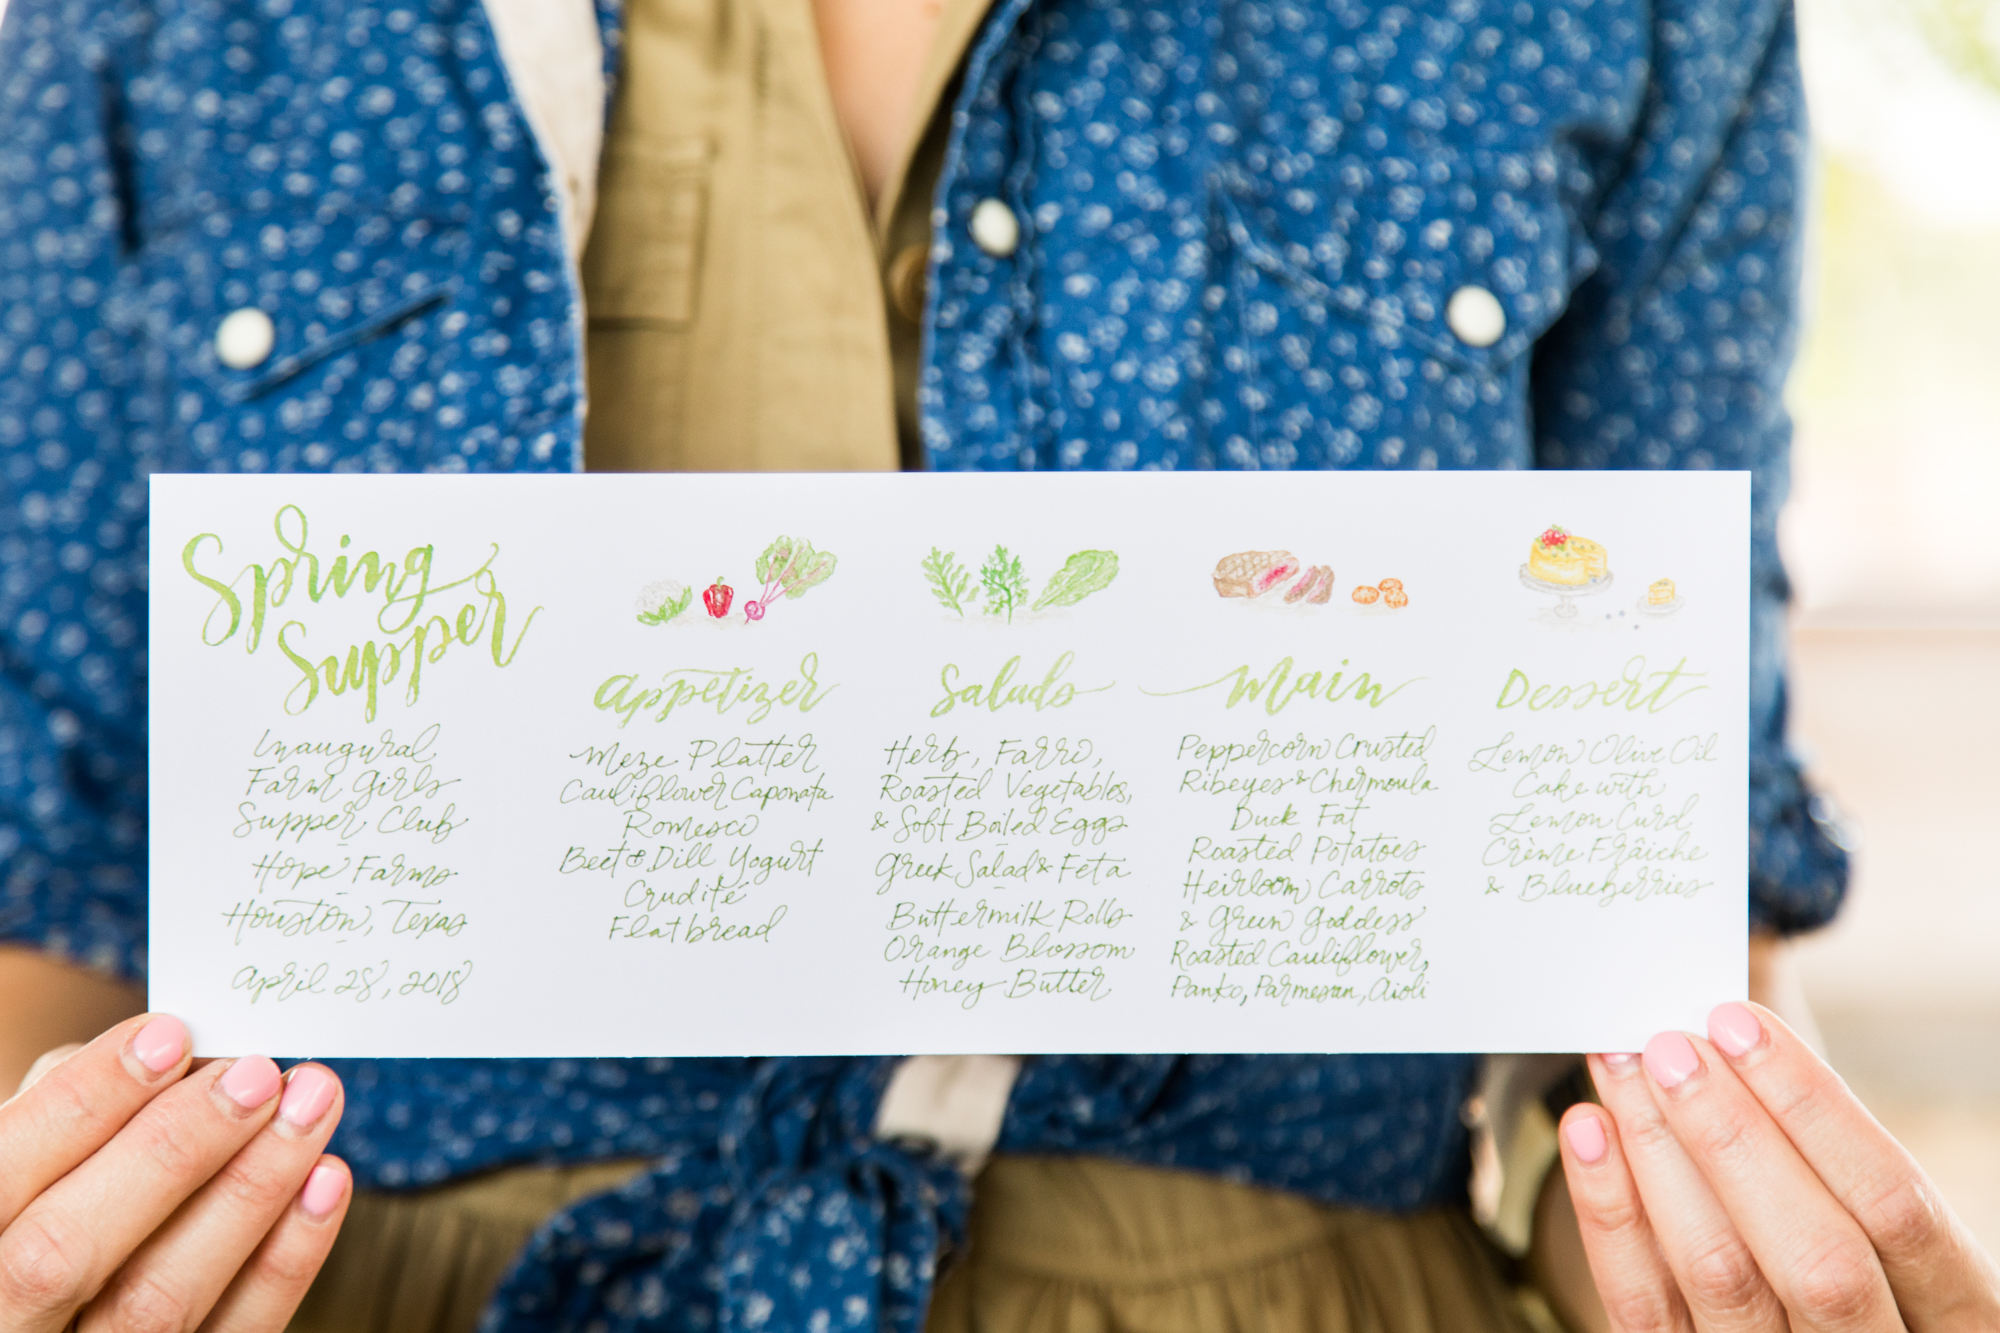 Spring
Supper
Inaugural
Farm Girls
Supper Club
Hope Farms
Houston, Texas
April 28, 2018
Appetizer
Meze Platter
Cauliflower Caponata
Romesco
Beet & Dill Yogurt
Crudité
Flatbread
Salads
Herb, Farro,
Roasted Vegetables,
& Soft Boiled Eggs
Greek Salad & Feta
Buttermilk Rolls
Orange Blossom
Honey Butter
Main
Peppercorn Crusted
Ribeyes & Chermoula
Duck Fat
Roasted Potatoes
Heirloom Carrots
& Green Goddess
Roasted Cauliflower,
Panko, Parmesan, Aioli
Dessert
Lemon Olive Oil
Cake with
Lemon Curd
Crème Frâiche
& Blueberries